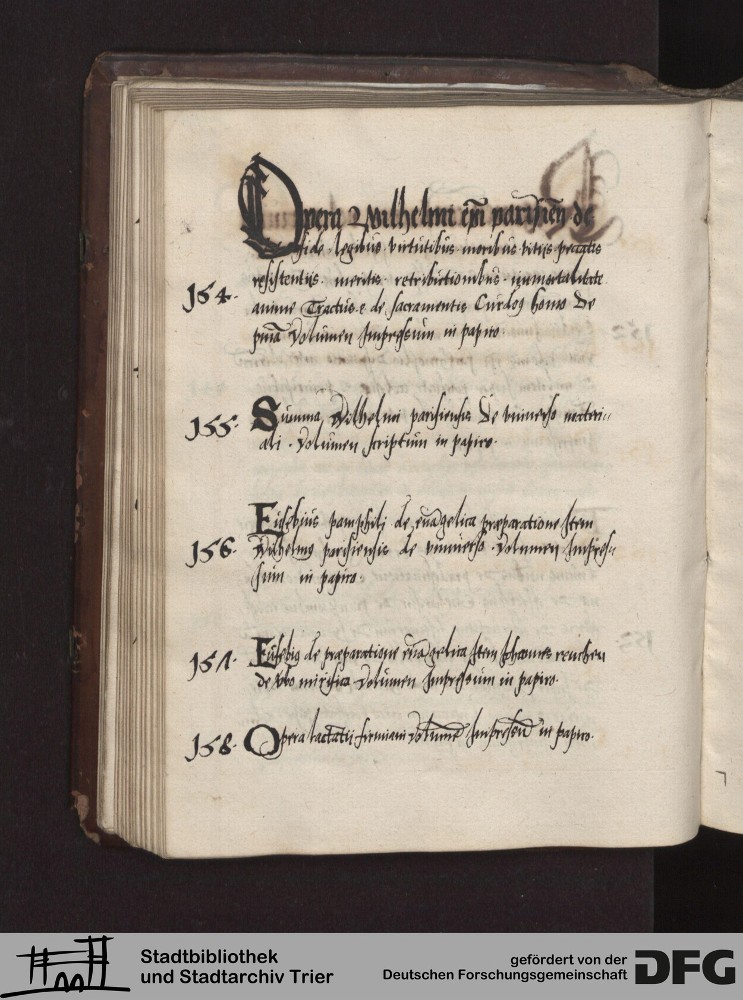 Opera Wilhelmi epi parisien de
fide. legibus. virtutibus. moribus vitijs peccatis
resistentijs. meritis. retributionibus. immortalitate
154. anime Tractus e de sacramentis Cur deus homo De
pnia Volumen Impressum in papiro.
155. Summa Wilhelmi parisiensis De vniuerso materi=
ali. Volumen scriptum in papiro.
Eusebius pamphili de euagelica præparatione Item
156. Wilhelmus parisiensis de vniuerso. Volumen Impres=
sum in papiro.
157. Eusebius de præparatione euagelica Item Johannes reuchen
de vbo mirifico Volumen Impressum in papiro.
158. Opera lactatii firmiani Volume Impressu in papiro.
Stadtbibliothek
und Stadtarchiv Trier
gefördert von der
Deutschen Forschungsgemeinschaft
DFG